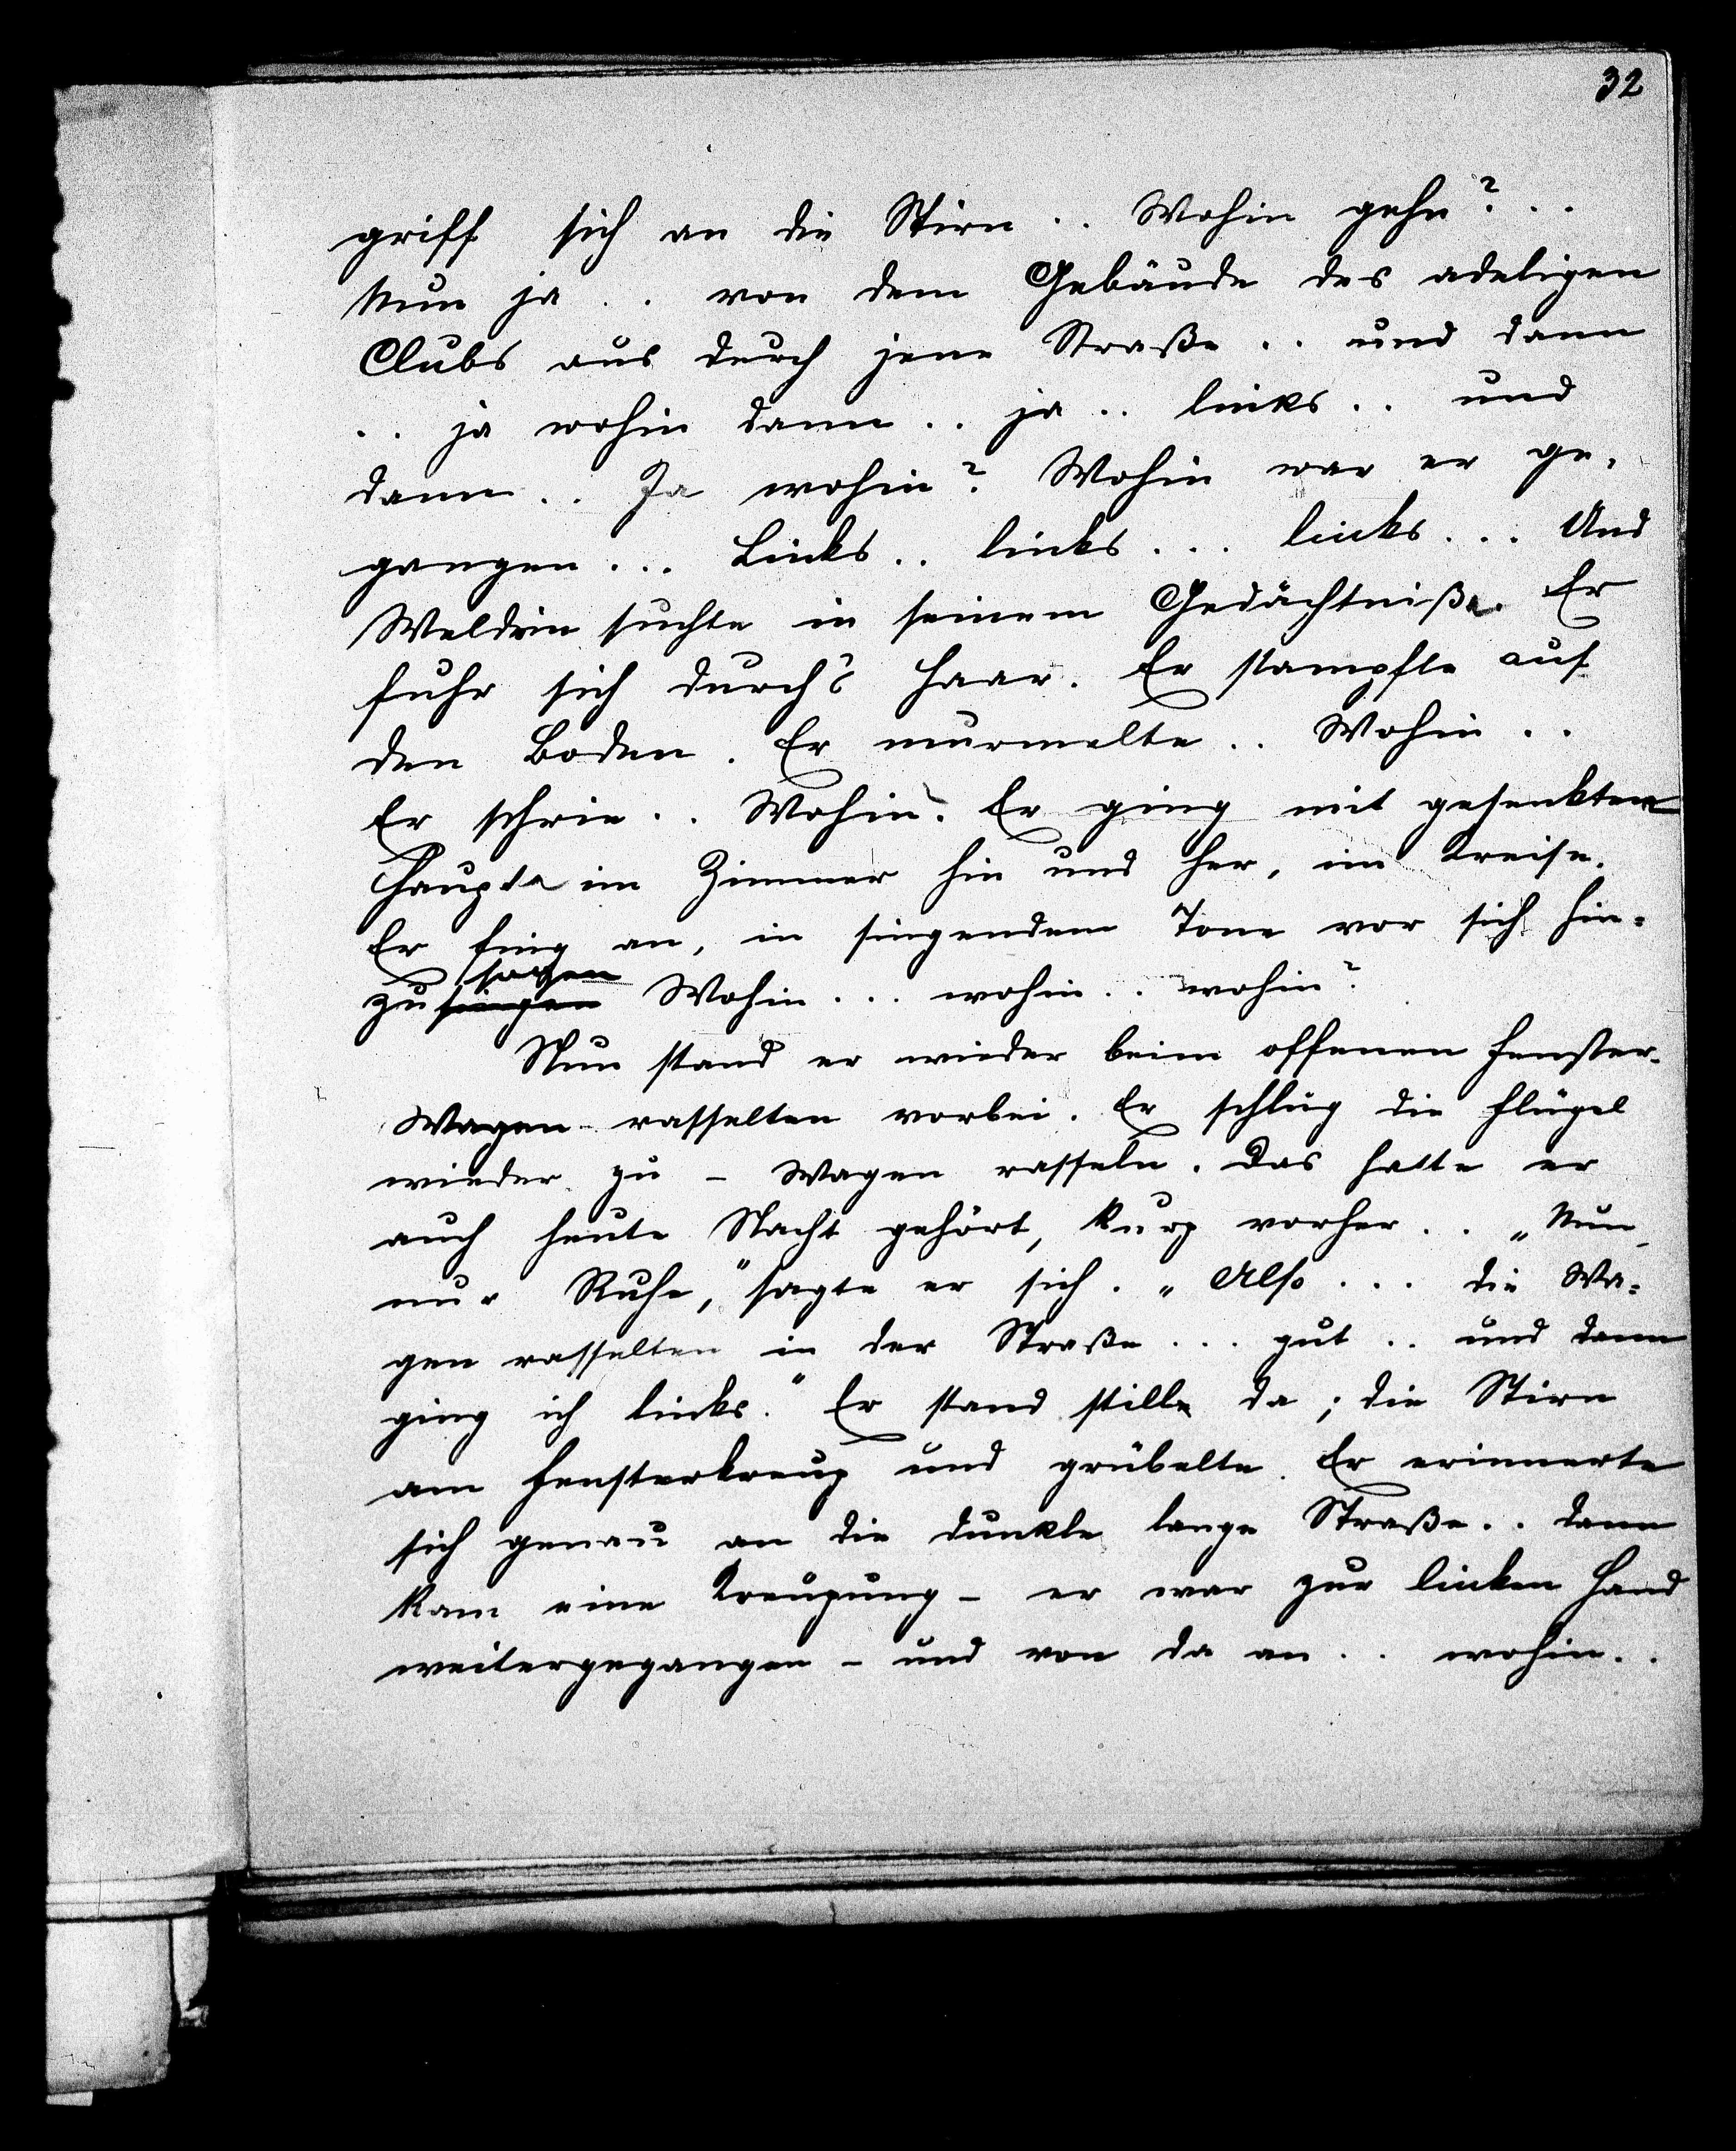 32
griff sich an die Stirn .. Wohin gehn? ..
Nun ja .. von dem Gebäude des adeligen
Clubs aus durch jene Straße .. und dann
.. ja wohin dann .. ja .. links .. und
dann .. Ja wohin? Wohin war er ge-
gangen ... Links .. links ... links ... Und
Weldein suchte in seinem Gedächtniße. Er
fuhr sich durch's Haar. Er stampfte auf
den Boden. Er murmelte .. Wohin ..
Er schrie .. Wohin. Er ging mit gesenktem
Haupte im Zimmer hin und her, im Kreise.
Er fing an, in singendem Tone vor sich hin=
sagen
zu singen Wohin ... wohin .. wohin?
Nun stand er wieder beim offenen Fenster.
Wagen rasselten vorbei. Er schlug die Flügel
wieder zu – Wagen rasseln. Das hatte er
auch heute Nacht gehört, kurz vorher .. „Nun
nur Ruhe," sagte er sich. „Also ... die Wa=
gen rasselten in der Straße ... gut .. und dann
ging ich links." Er stand stille da; die Stirn
am Fensterkreuz und grübelte. Er erinnerte
sich genau an die dunkle lange Straße .. dann
kam eine Kreuzung – er war zur linken Hand
weitergegangen – und von da an .. wohin ..